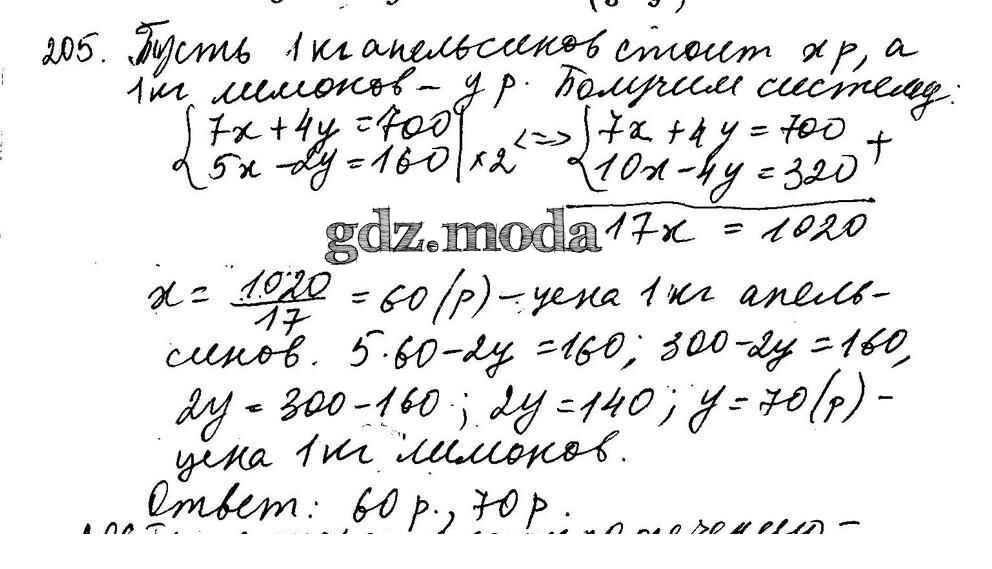 205. Пусть 1 кг апельсинов стоит x р, а
1 кг лимонов – y р. Получим систему:
{7x + 4y = 700 | <=> {7x + 4y = 700 +
{5x – 2y = 160 | × 2 {10x – 4y = 320
gdz.moda 17x = 1020
x = 1020/17 = 60 (р) – цена 1 кг апель-
синов. 5·60 – 2y = 160; 300 – 2y = 160,
2y = 300 – 160; 2y = 140; y = 70 (р) –
цена 1 кг лимонов.
Ответ: 60 р., 70 р.